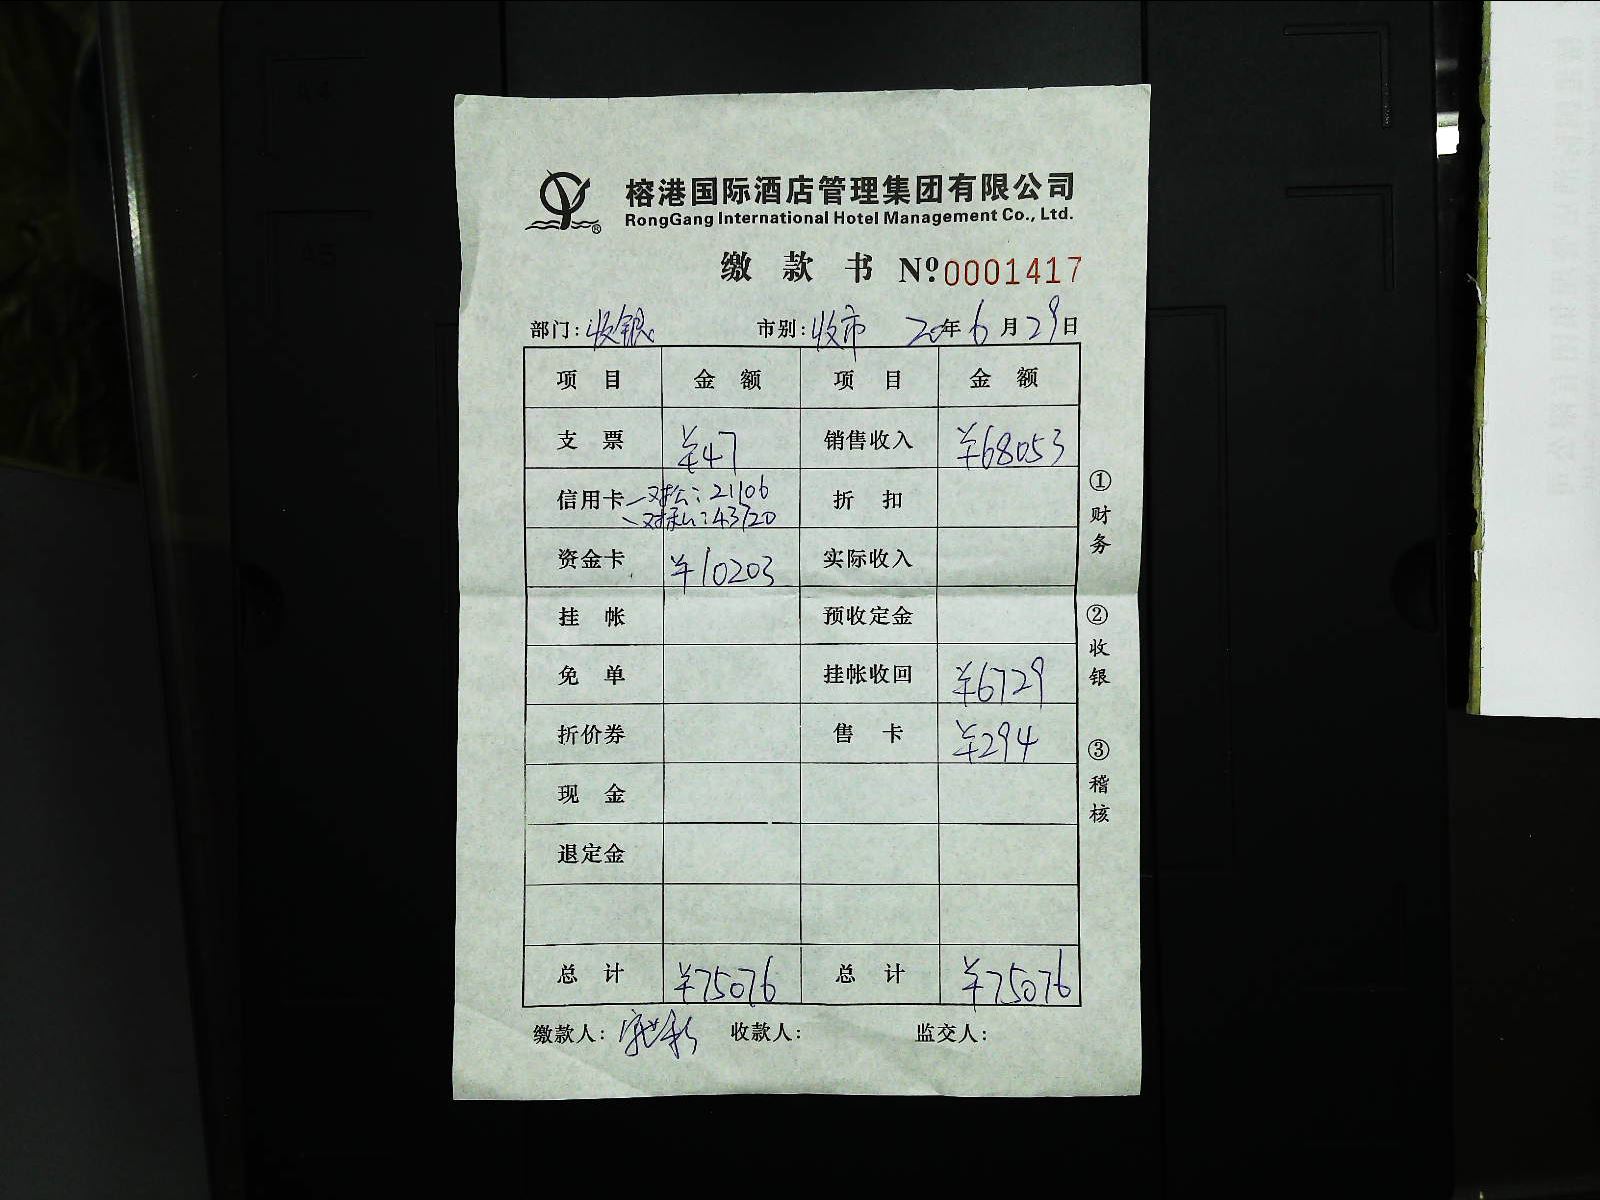 榕港国际酒店管理集团有限公司
RongGang International Hotel Management Co., Ltd.
缴 款 书 Nº 0001417
部门: 收银 市别: 收市 20年 6月 29日
项 目 金 额 项 目 金 额
支 票 ¥47 销售收入 ¥68053
信用卡 对公: 21106 折 扣
对私: 43720
资金卡 ¥10203 实际收入
挂 帐 预收定金
免 单 挂帐收回 ¥6729
折价券 售 卡 ¥294
现 金
退定金
总 计 ¥75076 总 计 ¥75076
缴款人: 收款人: 监交人:
①财务
②收银
③稽核
A4
A5